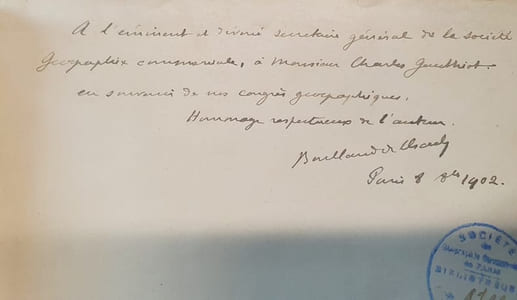 A l'éminent et dévoué secrétaire général de la société
Géographie commerciale, à Monsieur Charles Gauthiot.
en souvenir de nos congrès géographiques.
Hommage respectueux de l'auteur.
Paris 8 1902.
SOCIÉTÉ
de
Géographie Commerciale
de PARIS
BIBLIOTHÈQUE